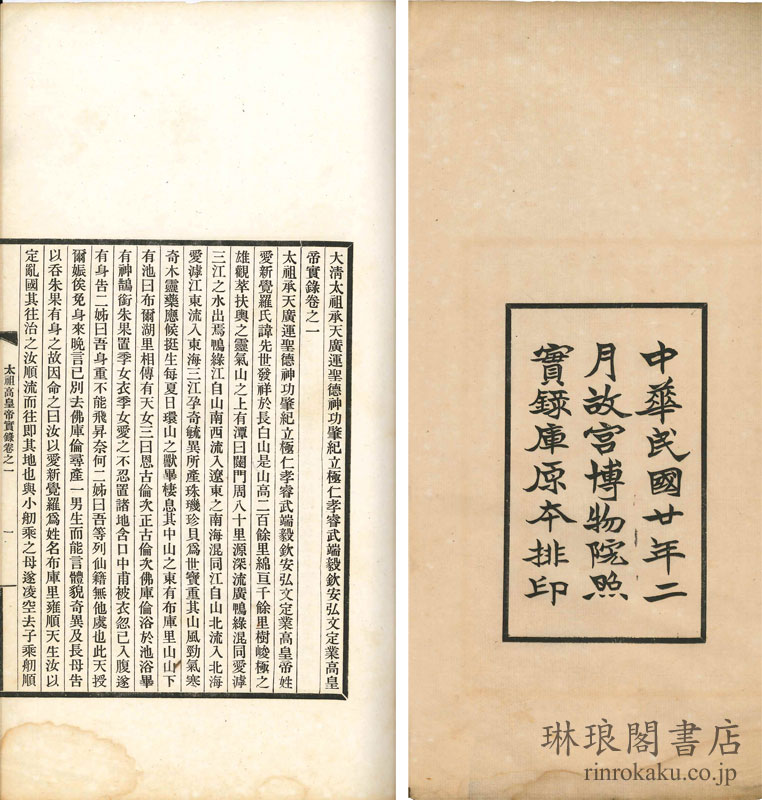 中華民國廿年二
月故宮博物院照
實錄庫原本排印
大清太祖承天廣運聖德神功肇紀立極仁孝睿武端毅欽安弘文定業高皇
帝實錄卷之一
太祖承天廣運聖德神功肇紀立極仁孝睿武端毅欽安弘文定業高皇帝姓
愛新覺羅氏諱先世發祥於長白山是山高二百餘里綿亘千餘里樹峻極之
雄觀萃扶輿之靈氣山之上有潭曰闥門周八十里源深流廣鴨綠混同愛滹
三江之水出焉鴨綠江自山南西流入遼東之南海混同江自山北流入北海
愛滹江東流入東海三江孕奇毓異所產珠璣珍貝爲世寶重其山風勁氣寒
奇木靈藥應候挺生每夏日環山之獸畢棲息其中山之東有布庫里山山下
有池曰布爾湖里相傳有天女三曰恩古倫次正古倫次佛庫倫浴於池浴畢
有神鵲銜朱果置季女衣季女愛之不忍置諸地含口中甫被衣忽已入腹遂
有身告二姊曰吾身重不能飛昇奈何二姊曰吾等列仙籍無他虞也此天授
爾娠俟免身來晚言已別去佛庫倫尋產一男生而能言體貌奇異及長母告
以吞朱果有身之故因命之曰汝以愛新覺羅爲姓名布庫里雍順天生汝以
定亂國其往治之汝順流而往即其地也與小舠乘之母遂凌空去子乘舠順
太祖高皇帝實錄卷之一
一
琳琅閣書店
rinrokaku.co.jp